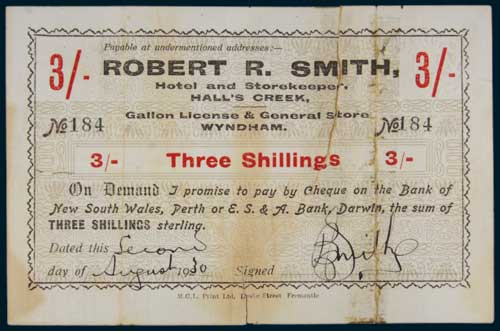 Payable at undermentioned addresses:—
3/- ROBERT R. SMITH, 3/-
Hotel and Storekeeper,
HALL'S CREEK,
Gallon License & General Store
No 184 WYNDHAM. No 184
3/- Three Shillings 3/-
On Demand I promise to pay by Cheque on the Bank of
New South Wales, Perth or E. S. & A. Bank, Darwin, the sum of
THREE SHILLINGS sterling.
Dated this Second
day of August 1930 Signed R Smith
M.C.L. Print Ltd, Street Fremantle